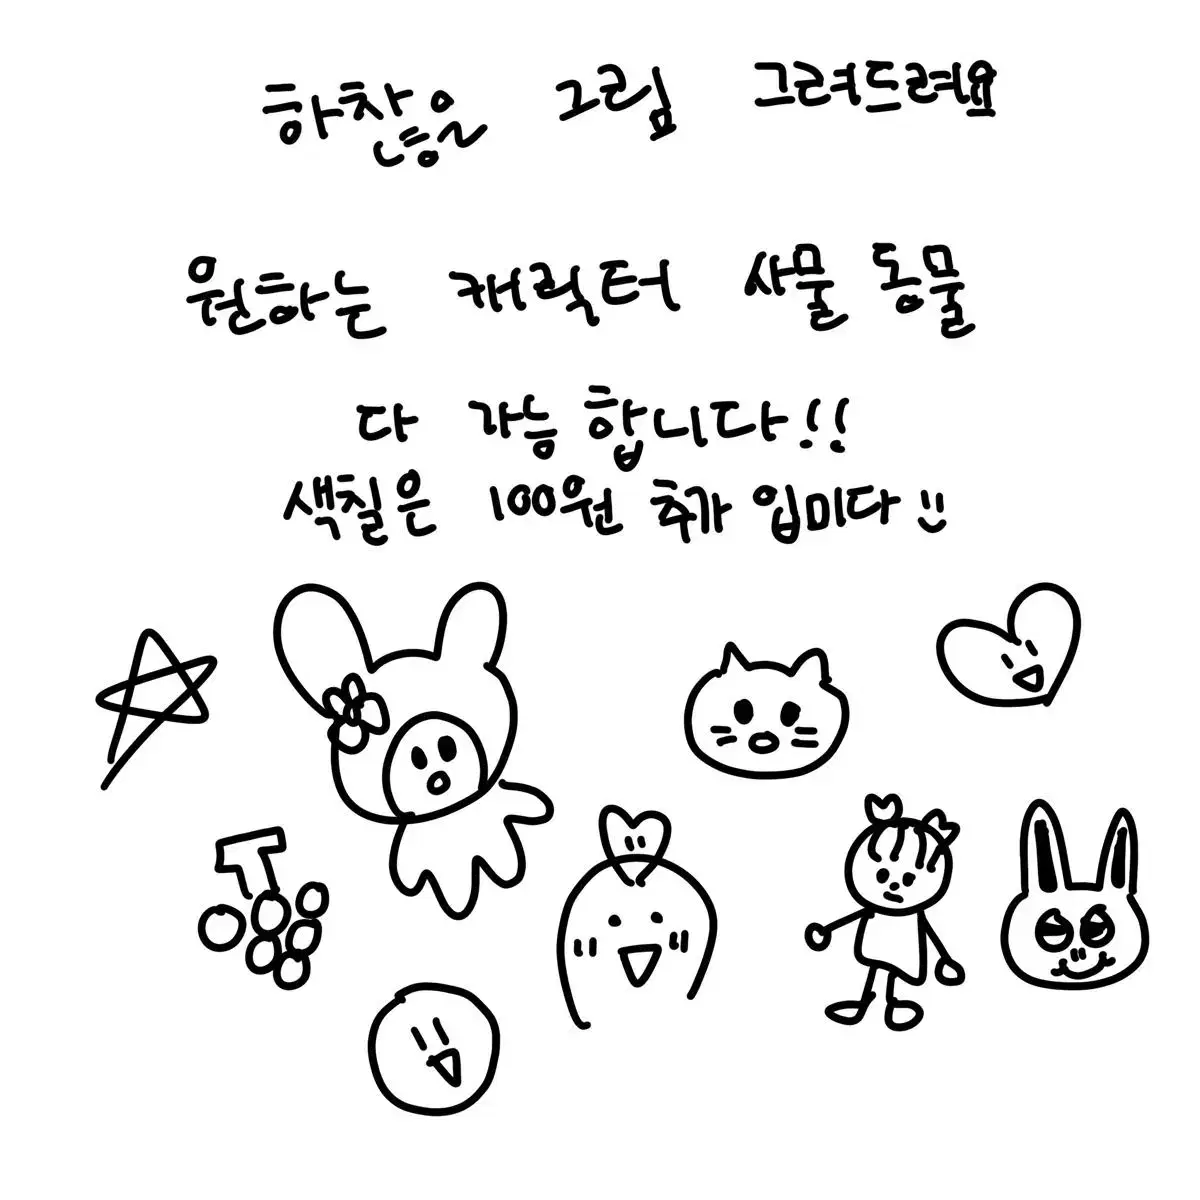 하찮은 그림 그려드려요
원하는 캐릭터 사물 동물
다 가능합니다!!
색칠은 100원 추가 입미다